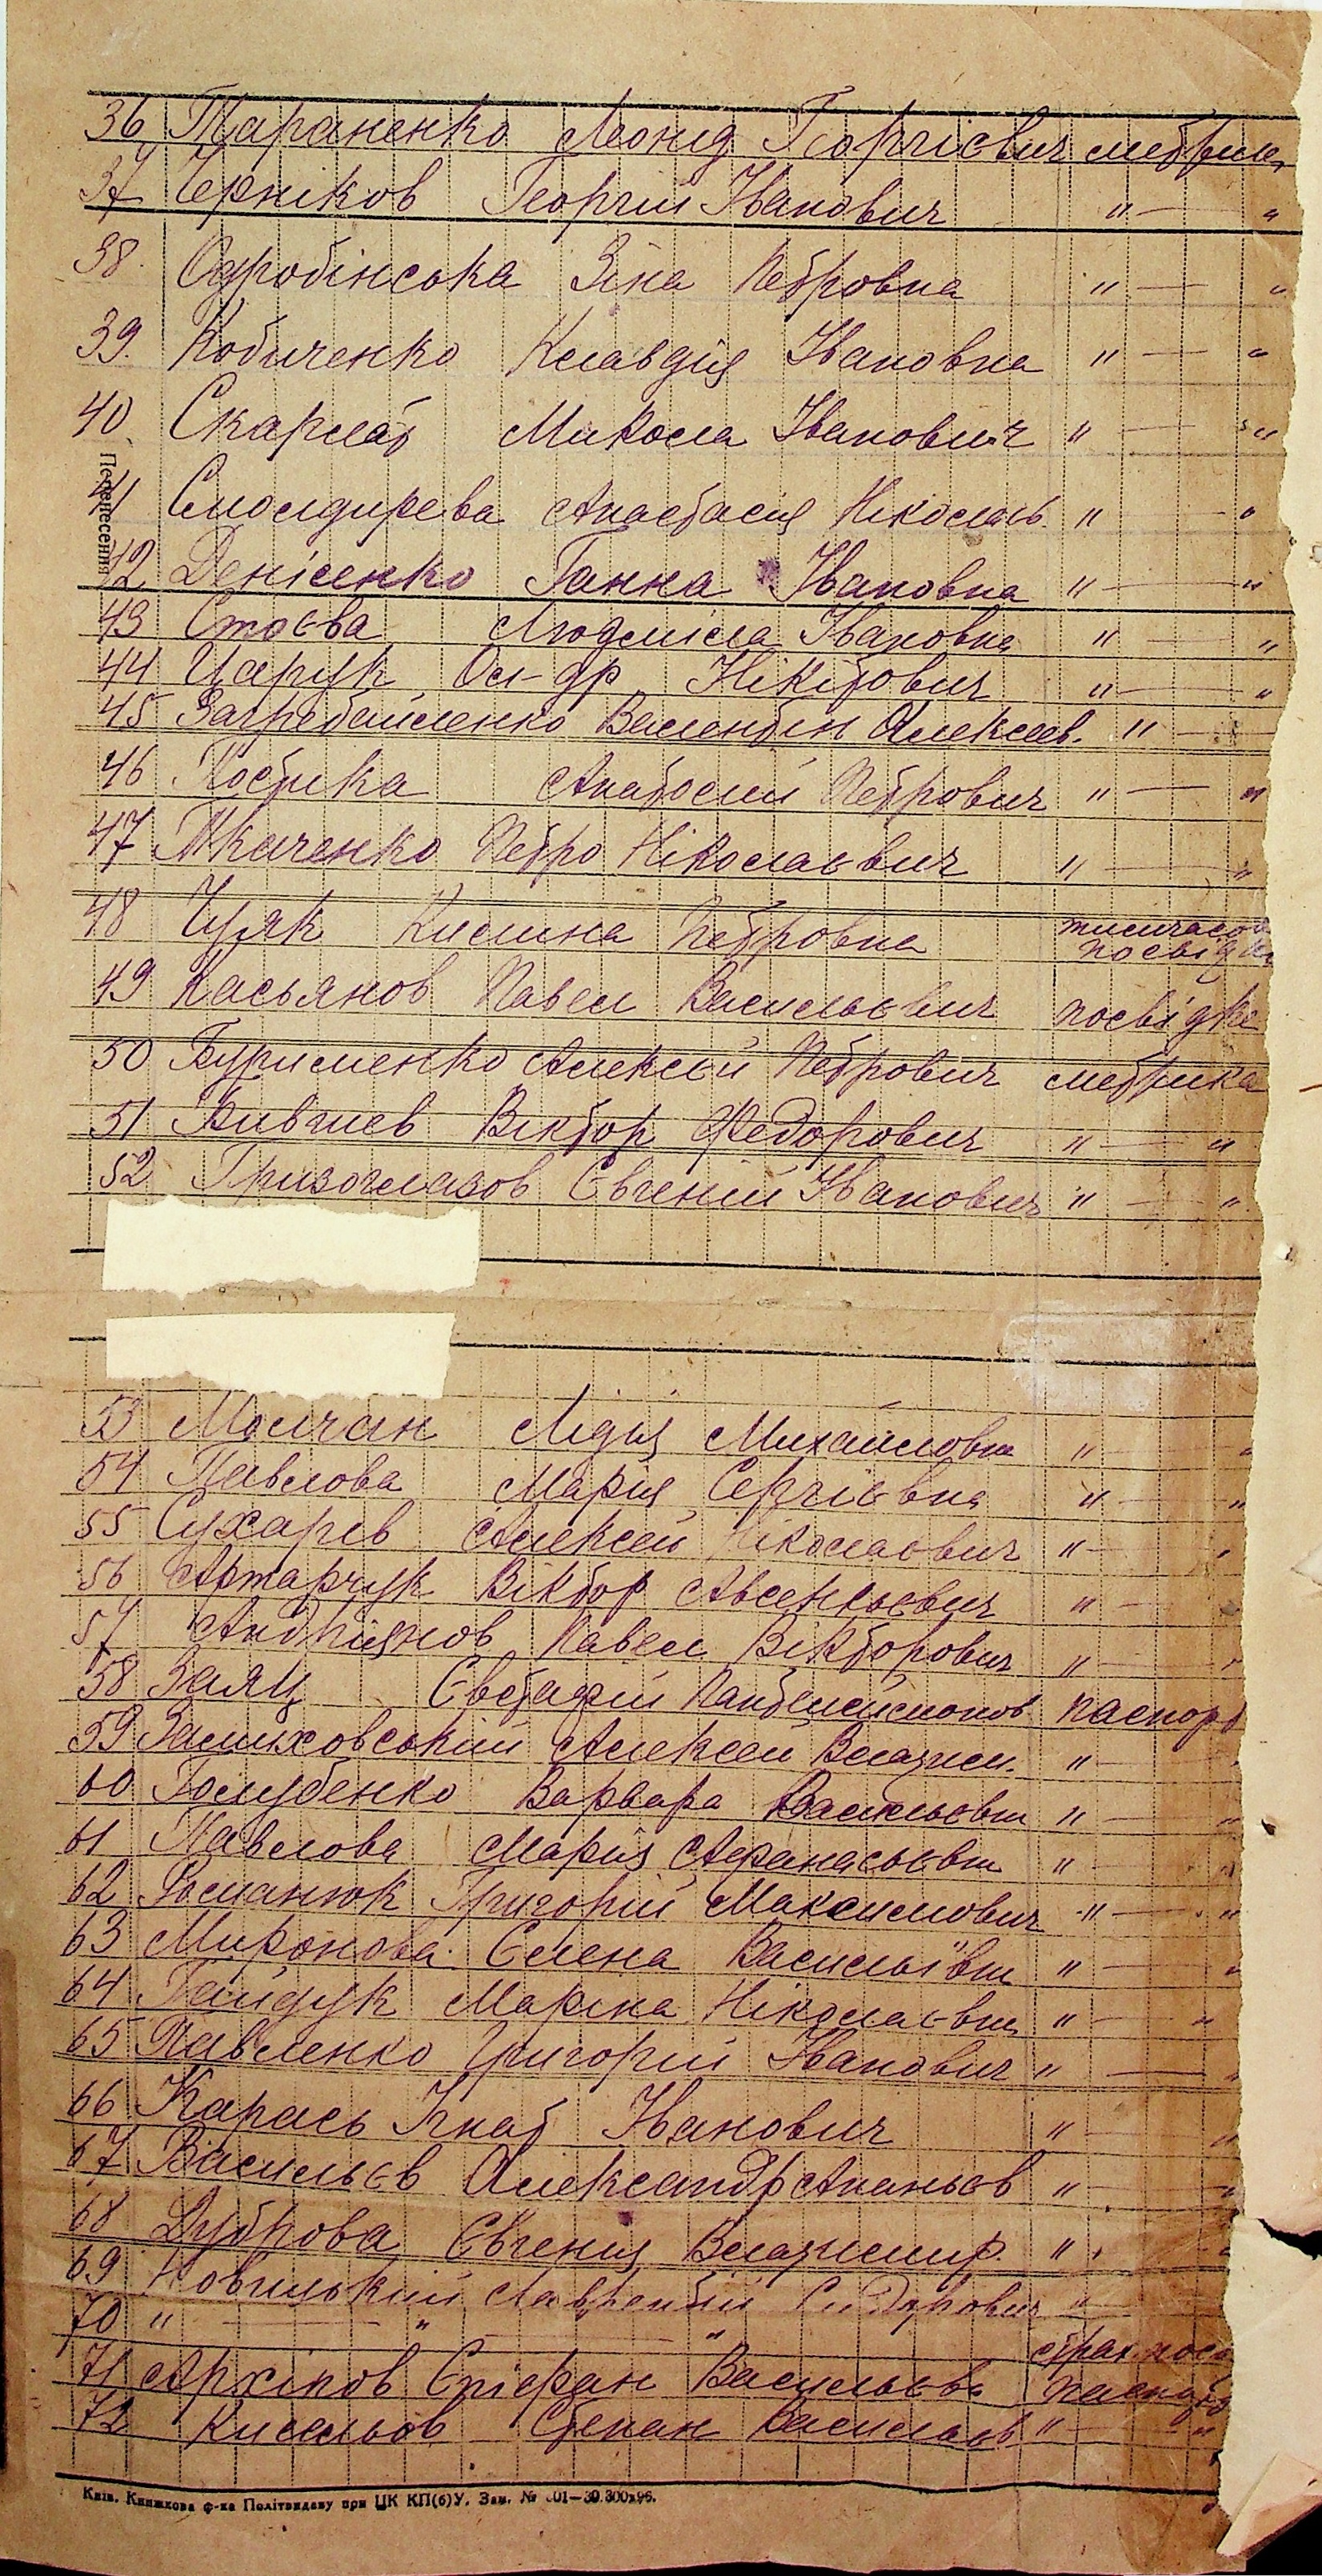 36 Тараненко Леонид Георгієвич метрик
37 Черніков Георгій Іванович " — "
38. Одробінська Зіна Петровна " — "
39. Кобиченко Клавдия Івановна " — "
40 Скарлат Микола Іванович " — "
Перенесення
41 Смолдирева Анастасия Ніколаєв. " — "
42 Денісенко Ганна Івановна " — "
43 Стоєва Людміла Івановна " — "
44 Царук Ол-др Нікітович " — "
45 Загребайленко Валентін Алексеев. " —
46 Костика Анатолий Петрович " — "
47 Ткаченко Петро Ніколаєвич " — "
48 Цуяк Килина Петровна тимчасов
посвідк
49 Касьянов Павел Васильєвич посвідке
50 Бурименко Алексей Петрович метрика
51 Вівтор Федорович " — "
52 Гризоглазов Євгеній Іванович " — "
53 Молчан Лідия Михайловна " — "
54 Павлова Мария Сергієвна " — "
55 Сухарев Алексей Ніколаєвич " — "
56 Артарчук Віктор Авсентьєвич " —
57 Андриянов Павел Вікторович " —
58 Заяц Євстафій Пантелеймонов паспорт
59 Залиховський Алексей Владим. " —
60 Голубенко Варвара Васильєвна " — "
61 Павлова Мария Афанасьєвна " — "
62 Романюк Григорій Максимович " — "
63 Миронова Єлена Васильївна " — "
64 Гайдук Марина Ніколаєвна " — "
65 Павленко Григорій Іванович " —
66 Карась Ігнат Іванович " — "
67 Васильєв Александр Ананьєв " — "
68 Дуброва Євгения Владимир. " — "
69 Новицький Лаврентій Сидорович "
70 " — " — " страх. посв
71 Архіпов Єпіфан Васильєвь паспорт
72 Кисельов Степан Васильєв " — "
Київ. Книжкова ф-ка Політвидаву при ЦК КП(б)У. Зам. № 601—30.300х96.